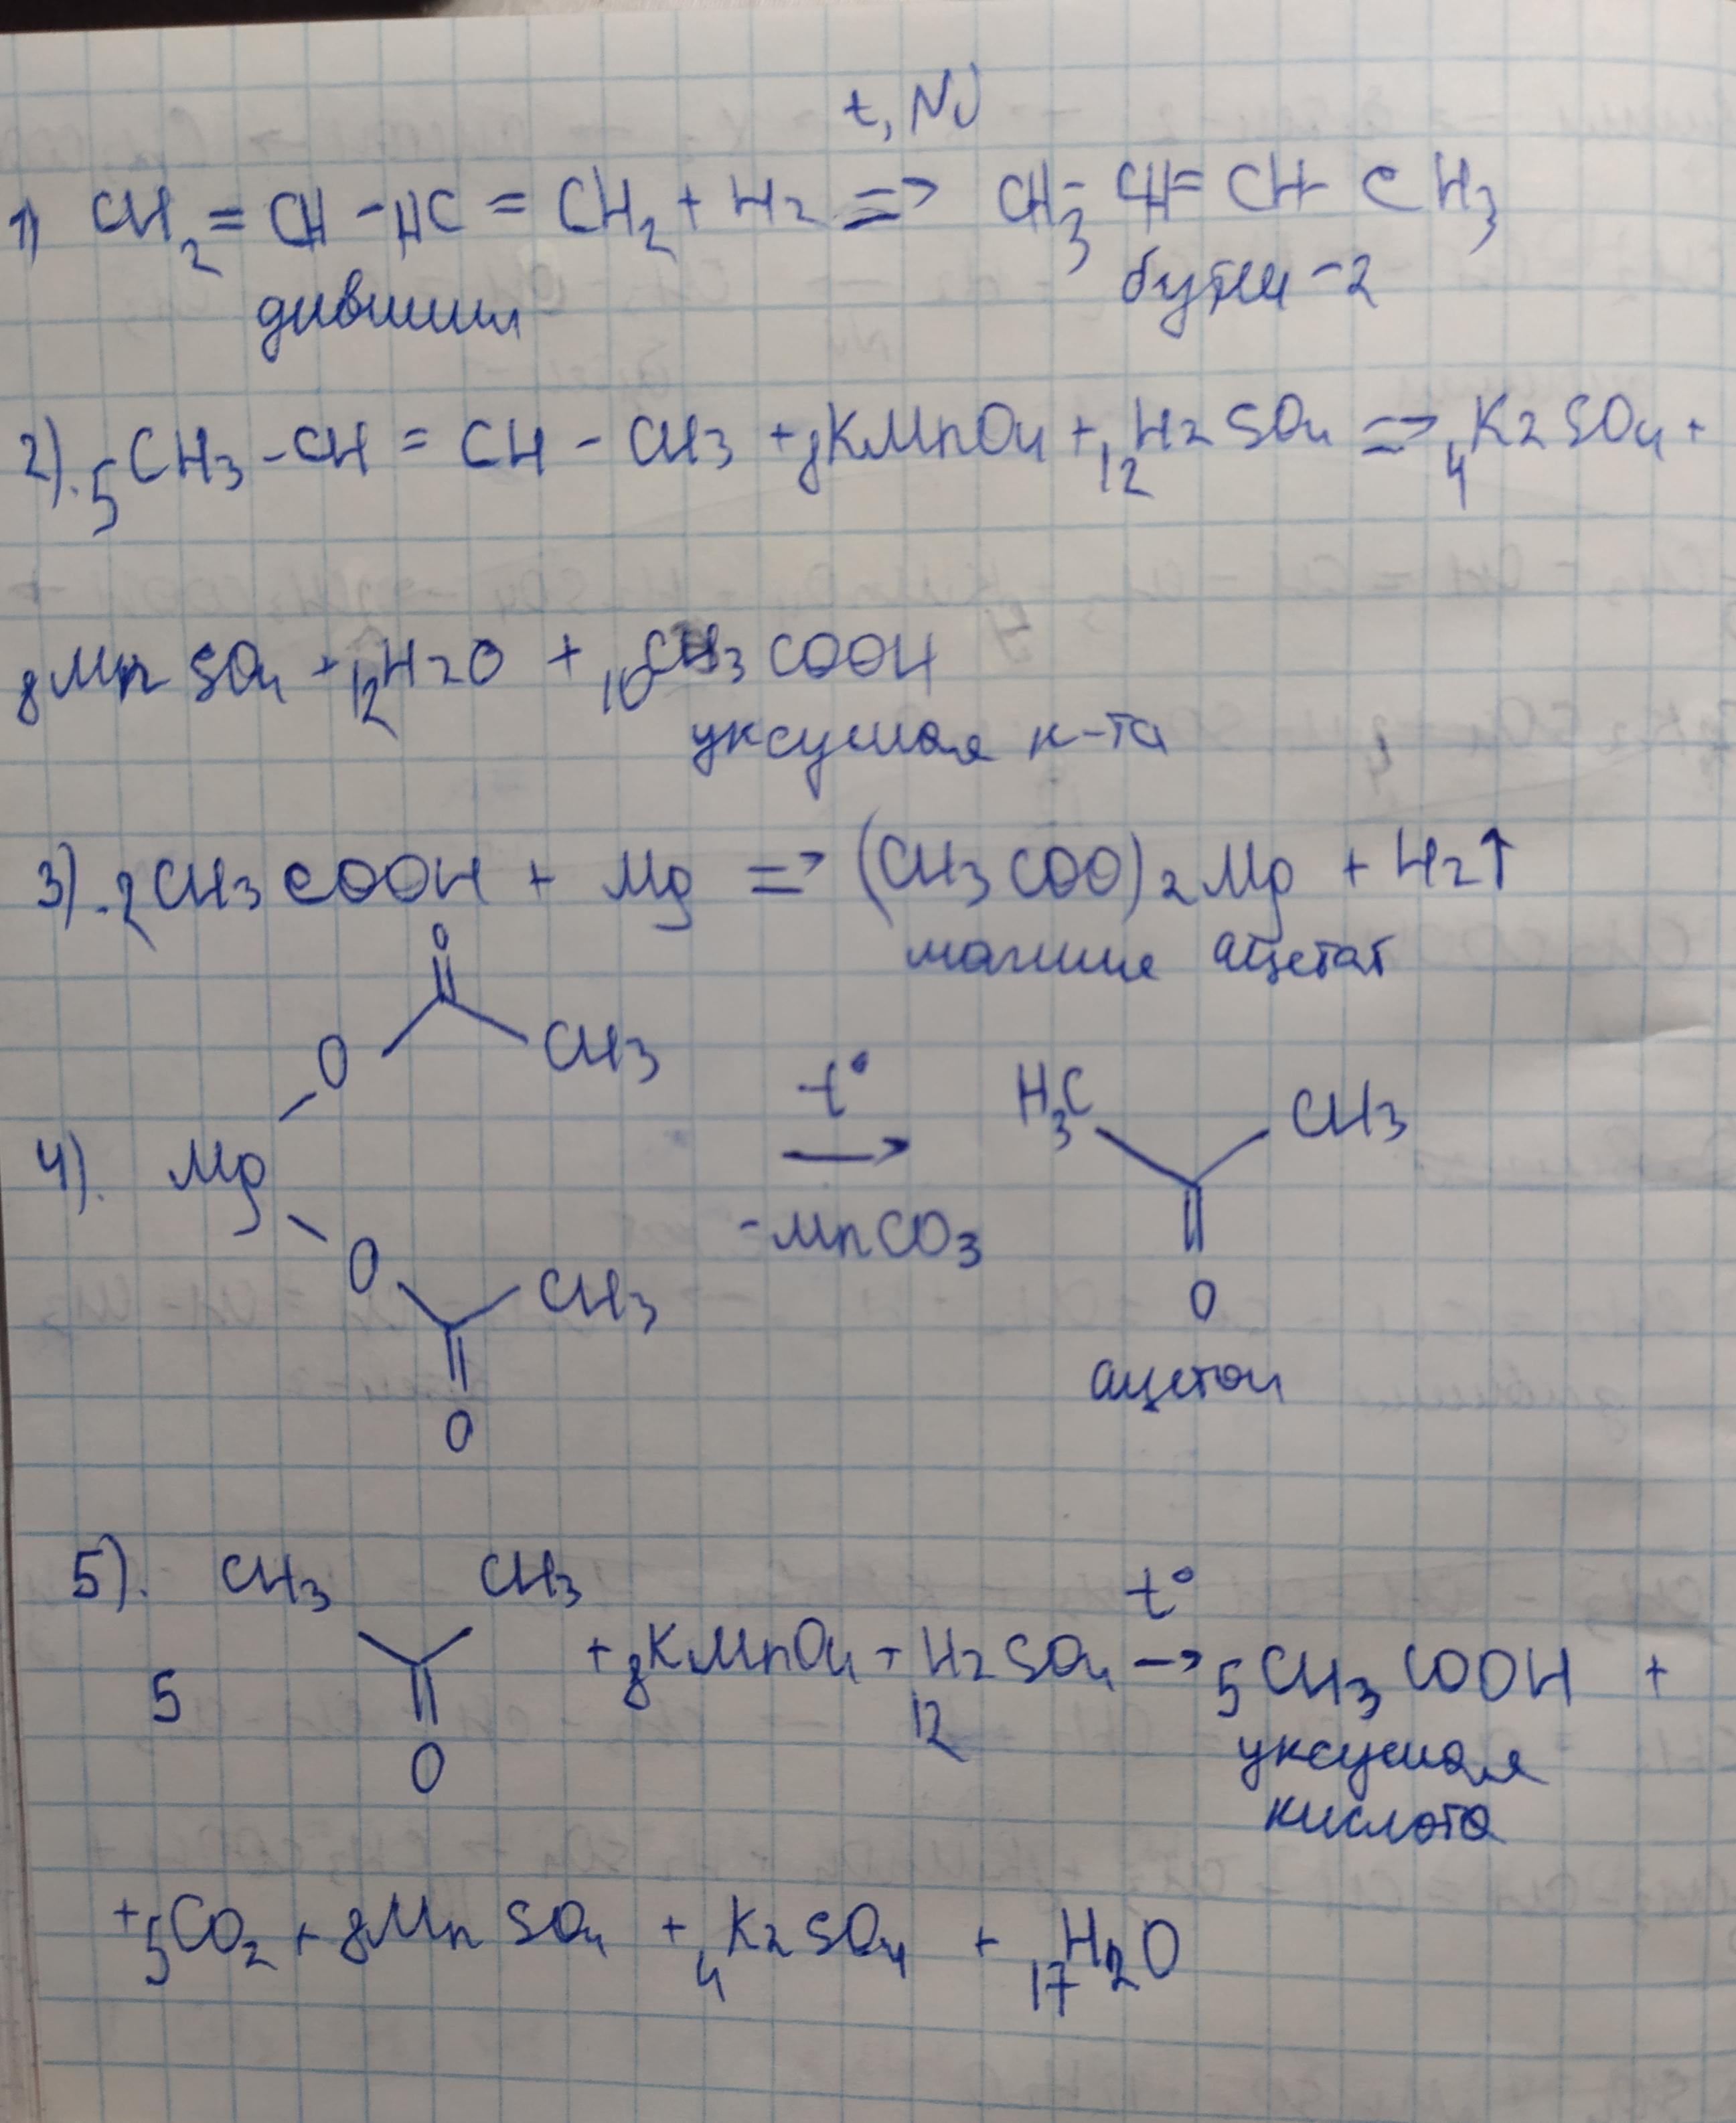 t, Ni
1) CH₂ = CH - HC = CH₂ + H₂ => CH₃ - CH = CH - CH₃
дивинил бутен-2
2). 5CH₃ - CH = CH - CH₃ + 8KMnO₄ + 12H₂SO₄ => 4K₂SO₄ +
8MnSO₄ + 12H₂O + 10CH₃COOH
уксусная к-та
3). 2CH₃COOH + Mg => (CH₃COO)₂Mg + H₂↑
магние ацетат
O
O CH₃ t° H₃C CH₃
4). Mg →
-MnCO₃
O CH₃ O
O ацетон
5). CH₃ CH₃ t°
5 + 8KMnO₄ + 12H₂SO₄ → 5CH₃COOH +
O уксусная
кислота
+ 5CO₂ + 8MnSO₄ + 4K₂SO₄ + 17H₂O